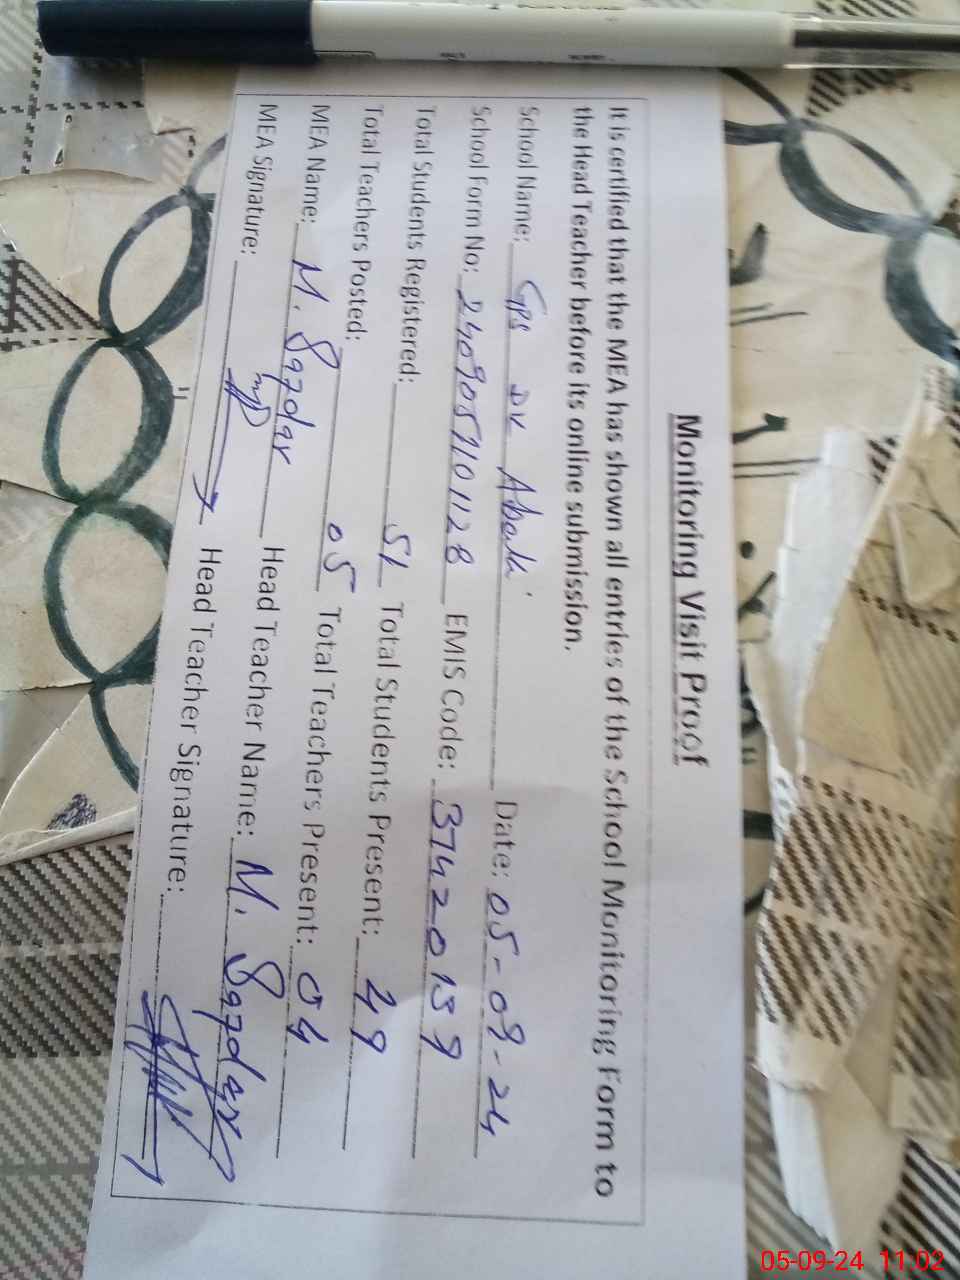 Monitoring Visit Proof
It is certified that the MEA has shown all entries of the School Monitoring Form to
the Head Teacher before its online submission.
School Name: GPS DK Date: 05-09-24
School Form No: 2409057101128 EMIS Code: 37420159
Total Students Registered: 51 Total Students Present: 49
Total Teachers Posted: 05 Total Teachers Present: 04
MEA Name: M. Safdar Head Teacher Name: M. Safdar
MEA Signature: Head Teacher Signature:
05-09-24 11:02